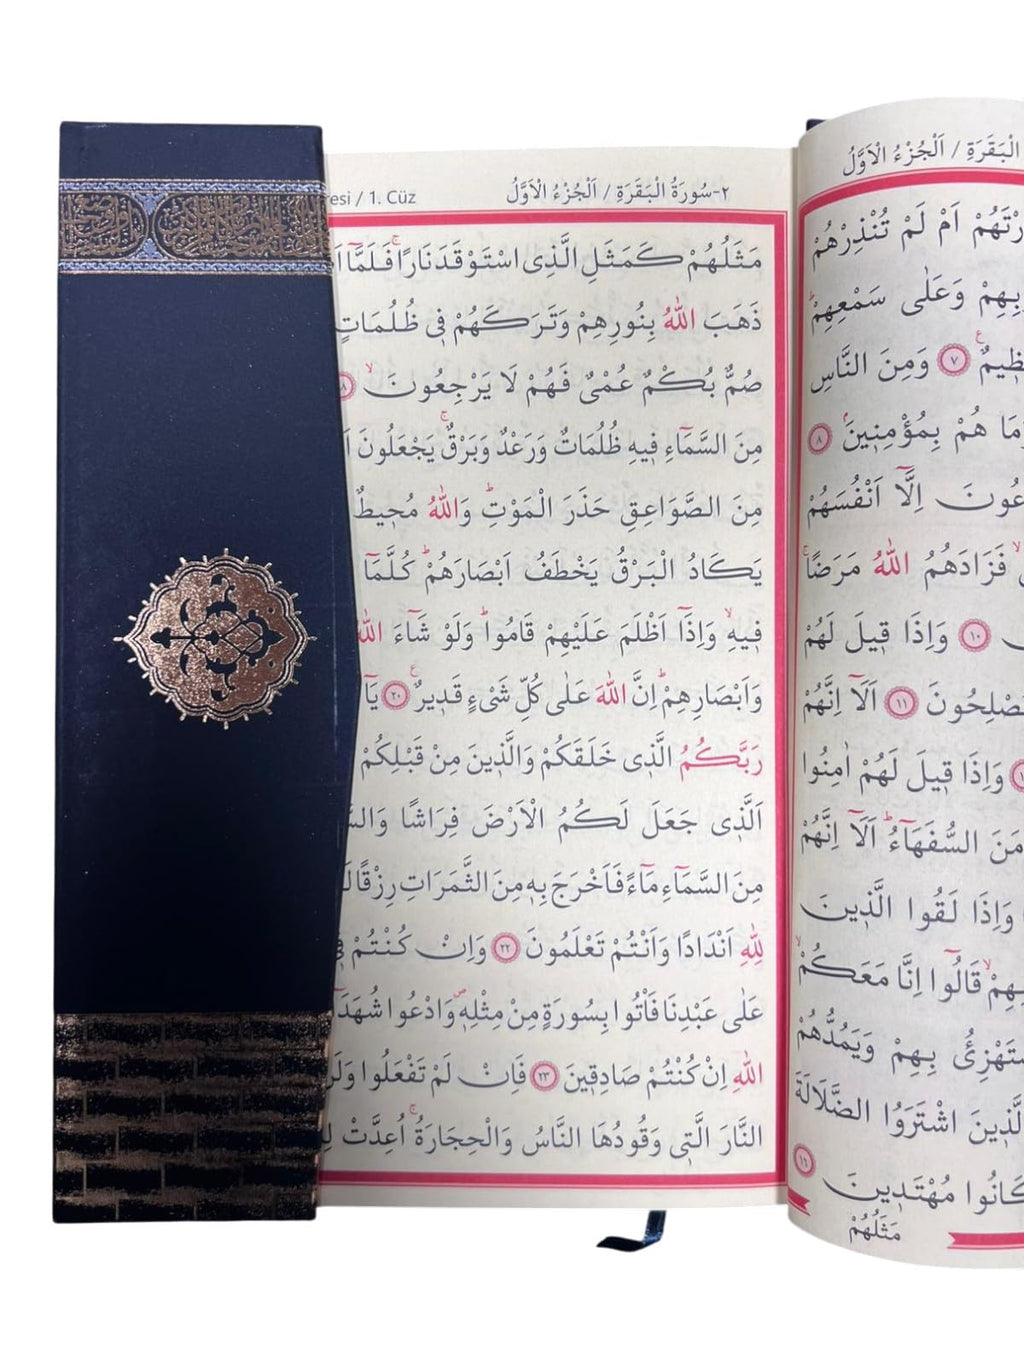 esi / 1. Cüz
٢-سُورَةُ الْبَقَرَةِ / اَلْجُزْءُ الْاَوَّلُ
مَثَلُهُمْ كَمَثَلِ الَّذِى اسْتَوْقَدَ نَارًاۚ فَلَمَّٓا
ذَهَبَ اللّٰهُ بِنُورِهِمْ وَتَرَكَهُمْ فٖى ظُلُمَاتٍ
صُمٌّ بُكْمٌ عُمْىٌ فَهُمْ لَا يَرْجِعُونَۙ ﴿١٨﴾
مِنَ السَّمَٓاءِ فٖيهِ ظُلُمَاتٌ وَرَعْدٌ وَبَرْقٌۚ يَجْعَلُونَ
مِنَ الصَّوَاعِقِ حَذَرَ الْمَوْتِؕ وَاللّٰهُ مُحٖيطٌ
يَكَادُ الْبَرْقُ يَخْطَفُ اَبْصَارَهُمْؕ كُلَّمَٓا
فٖيهِۙ وَاِذَٓا اَظْلَمَ عَلَيْهِمْ قَامُواؕ وَلَوْ شَٓاءَ اللّٰهُ
وَاَبْصَارِهِمْؕ اِنَّ اللّٰهَ عَلٰى كُلِّ شَىْءٍ قَدٖيرٌࣖ ﴿٢٠﴾ يَٓا
رَبَّكُمُ الَّذٖى خَلَقَكُمْ وَالَّذٖينَ مِنْ قَبْلِكُمْ
اَلَّذٖى جَعَلَ لَكُمُ الْاَرْضَ فِرَاشًا
مِنَ السَّمَٓاءِ مَٓاءً فَاَخْرَجَ بِهٖ مِنَ الثَّمَرَاتِ رِزْقًا
لِلّٰهِ اَنْدَادًا وَاَنْتُمْ تَعْلَمُونَ ﴿٢٢﴾ وَاِنْ كُنْتُمْ فٖى
عَلٰى عَبْدِنَا فَاْتُوا بِسُورَةٍ مِنْ مِثْلِهٖࣕ وَادْعُوا
اللّٰهِ اِنْ كُنْتُمْ صَادِقٖينَ ﴿٢٣﴾ فَاِنْ لَمْ تَفْعَلُوا
النَّارَ الَّتٖى وَقُودُهَا النَّاسُ وَالْحِجَارَةُۚ اُعِدَّتْ
الْبَقَرَةِ / اَلْجُزْءُ الْاَوَّلُ
اَمْ لَمْ تُنْذِرْهُمْ
وَعَلٰى سَمْعِهِمْؕ
﴿٧﴾ وَمِنَ النَّاسِ
هُمْ بِمُؤْمِنٖينَۘ ﴿٨﴾
اِلَّٓا اَنْفُسَهُمْ
فَزَادَهُمُ اللّٰهُ مَرَضًاۚ
﴿١٠﴾ وَاِذَا قٖيلَ لَهُمْ
﴿١١﴾ اَلَٓا اِنَّهُمْ
وَاِذَا قٖيلَ لَهُمْ اٰمِنُوا
السُّفَهَٓاءُؕ اَلَٓا اِنَّهُمْ
وَاِذَا لَقُوا الَّذٖينَ
قَالُٓوا اِنَّا مَعَكُمْۙ
بِهِمْ وَيَمُدُّهُمْ
اشْتَرَوُا الضَّلَالَةَ
كَانُوا مُهْتَدٖينَ ﴿١٦﴾
مَثَلُهُمْ